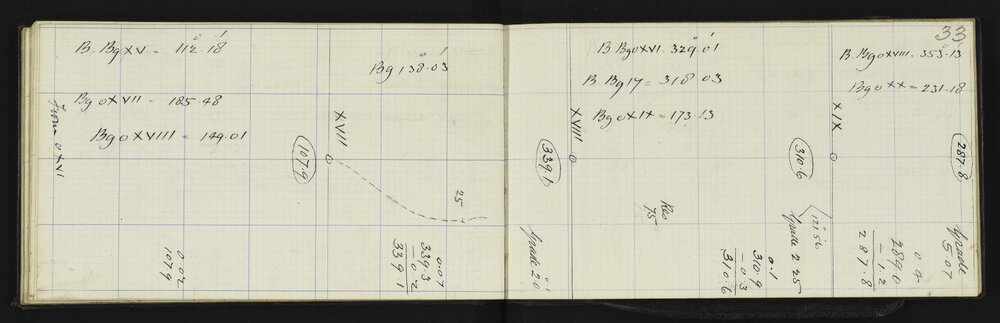 33
B. Bg XV = 112°.18'
Bg 138°.03'
Bg o XVII = 185.48
Bg o XVIII = 149.01
From o XVI
XVII
107.9
25
0.02
107.9
0.07
339.3
- 0.2
339.1
B Bg o XVI. 329°.01'
B Bg 17 = 318.03
Bg o XIX = 173.13
XVIII
339.1
Res
75
Grade 2°0'
0.1
310.9
- 0.3
310.6
B Bg o XVIII. 353°.13
Bg o XX = 231.18
XIX
310.6
287.8
Grade 2 25
Grade
5.07
0.4
289.0
- 1.2
287.8